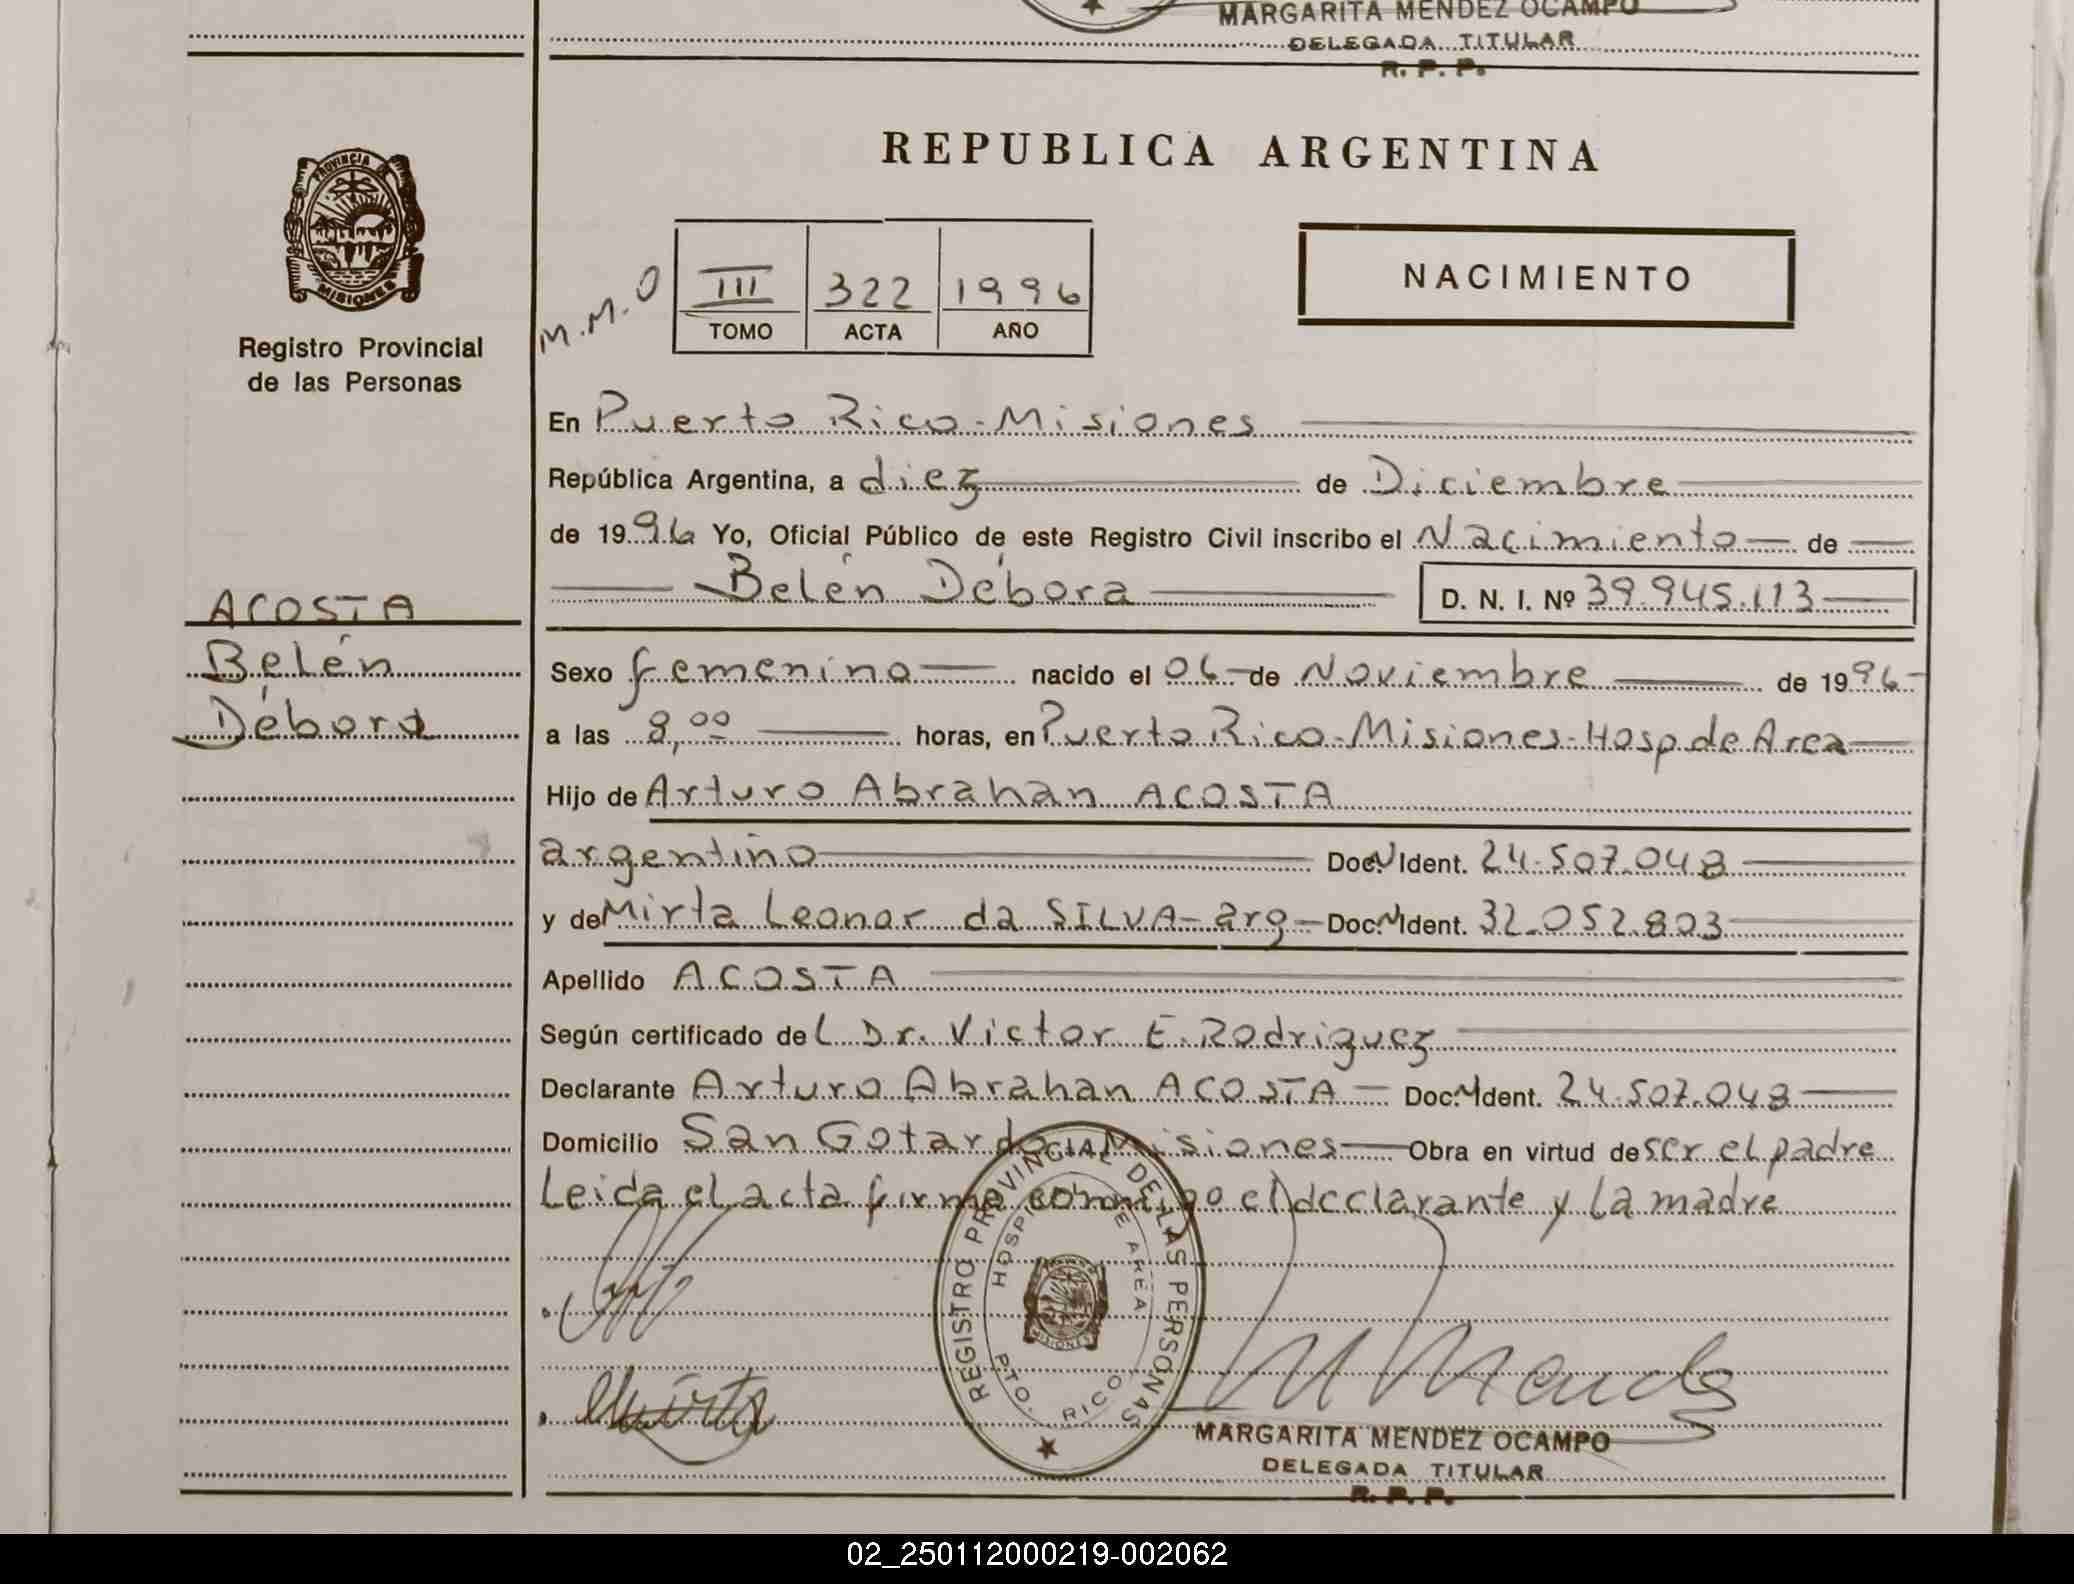 MARGARITA MENDEZ OCAMPO
DELEGADA TITULAR
R. P. P.
PROVINCIA DE
MISIONES
Registro Provincial
de las Personas
REPUBLICA ARGENTINA
M.M.O
III 322 1996
TOMO ACTA AÑO
NACIMIENTO
En Puerto Rico - Misiones
República Argentina, a diez de Diciembre
de 1996 Yo, Oficial Público de este Registro Civil inscribo el Nacimiento de
Belén Débora D. N. I. Nº 39.945.113
ACOSTA
Belén
Débora
Sexo femenino nacido el 06 de Noviembre de 1996
a las 8,00 horas, en Puerto Rico - Misiones - Hosp. de Area
Hijo de Arturo Abrahan ACOSTA
argentino Doc. N Ident. 24.507.048
y de Mirta Leonor da SILVA - arg - Doc. N Ident. 32.052.803
Apellido ACOSTA
Según certificado del Dr. Victor E. Rodriguez
Declarante Arturo Abrahan ACOSTA - Doc. N Ident. 24.507.048
Domicilio San Gotardo - Misiones Obra en virtud de ser el padre
Leida el acta firma conmigo el declarante y la madre
REGISTRO PROVINCIAL DE LAS PERSONAS
HOSPITAL DE AREA
MISIONES
PTO. RICO
Mirta
M Mendez
MARGARITA MENDEZ OCAMPO
DELEGADA TITULAR
R. P. P.
02_250112000219-002062